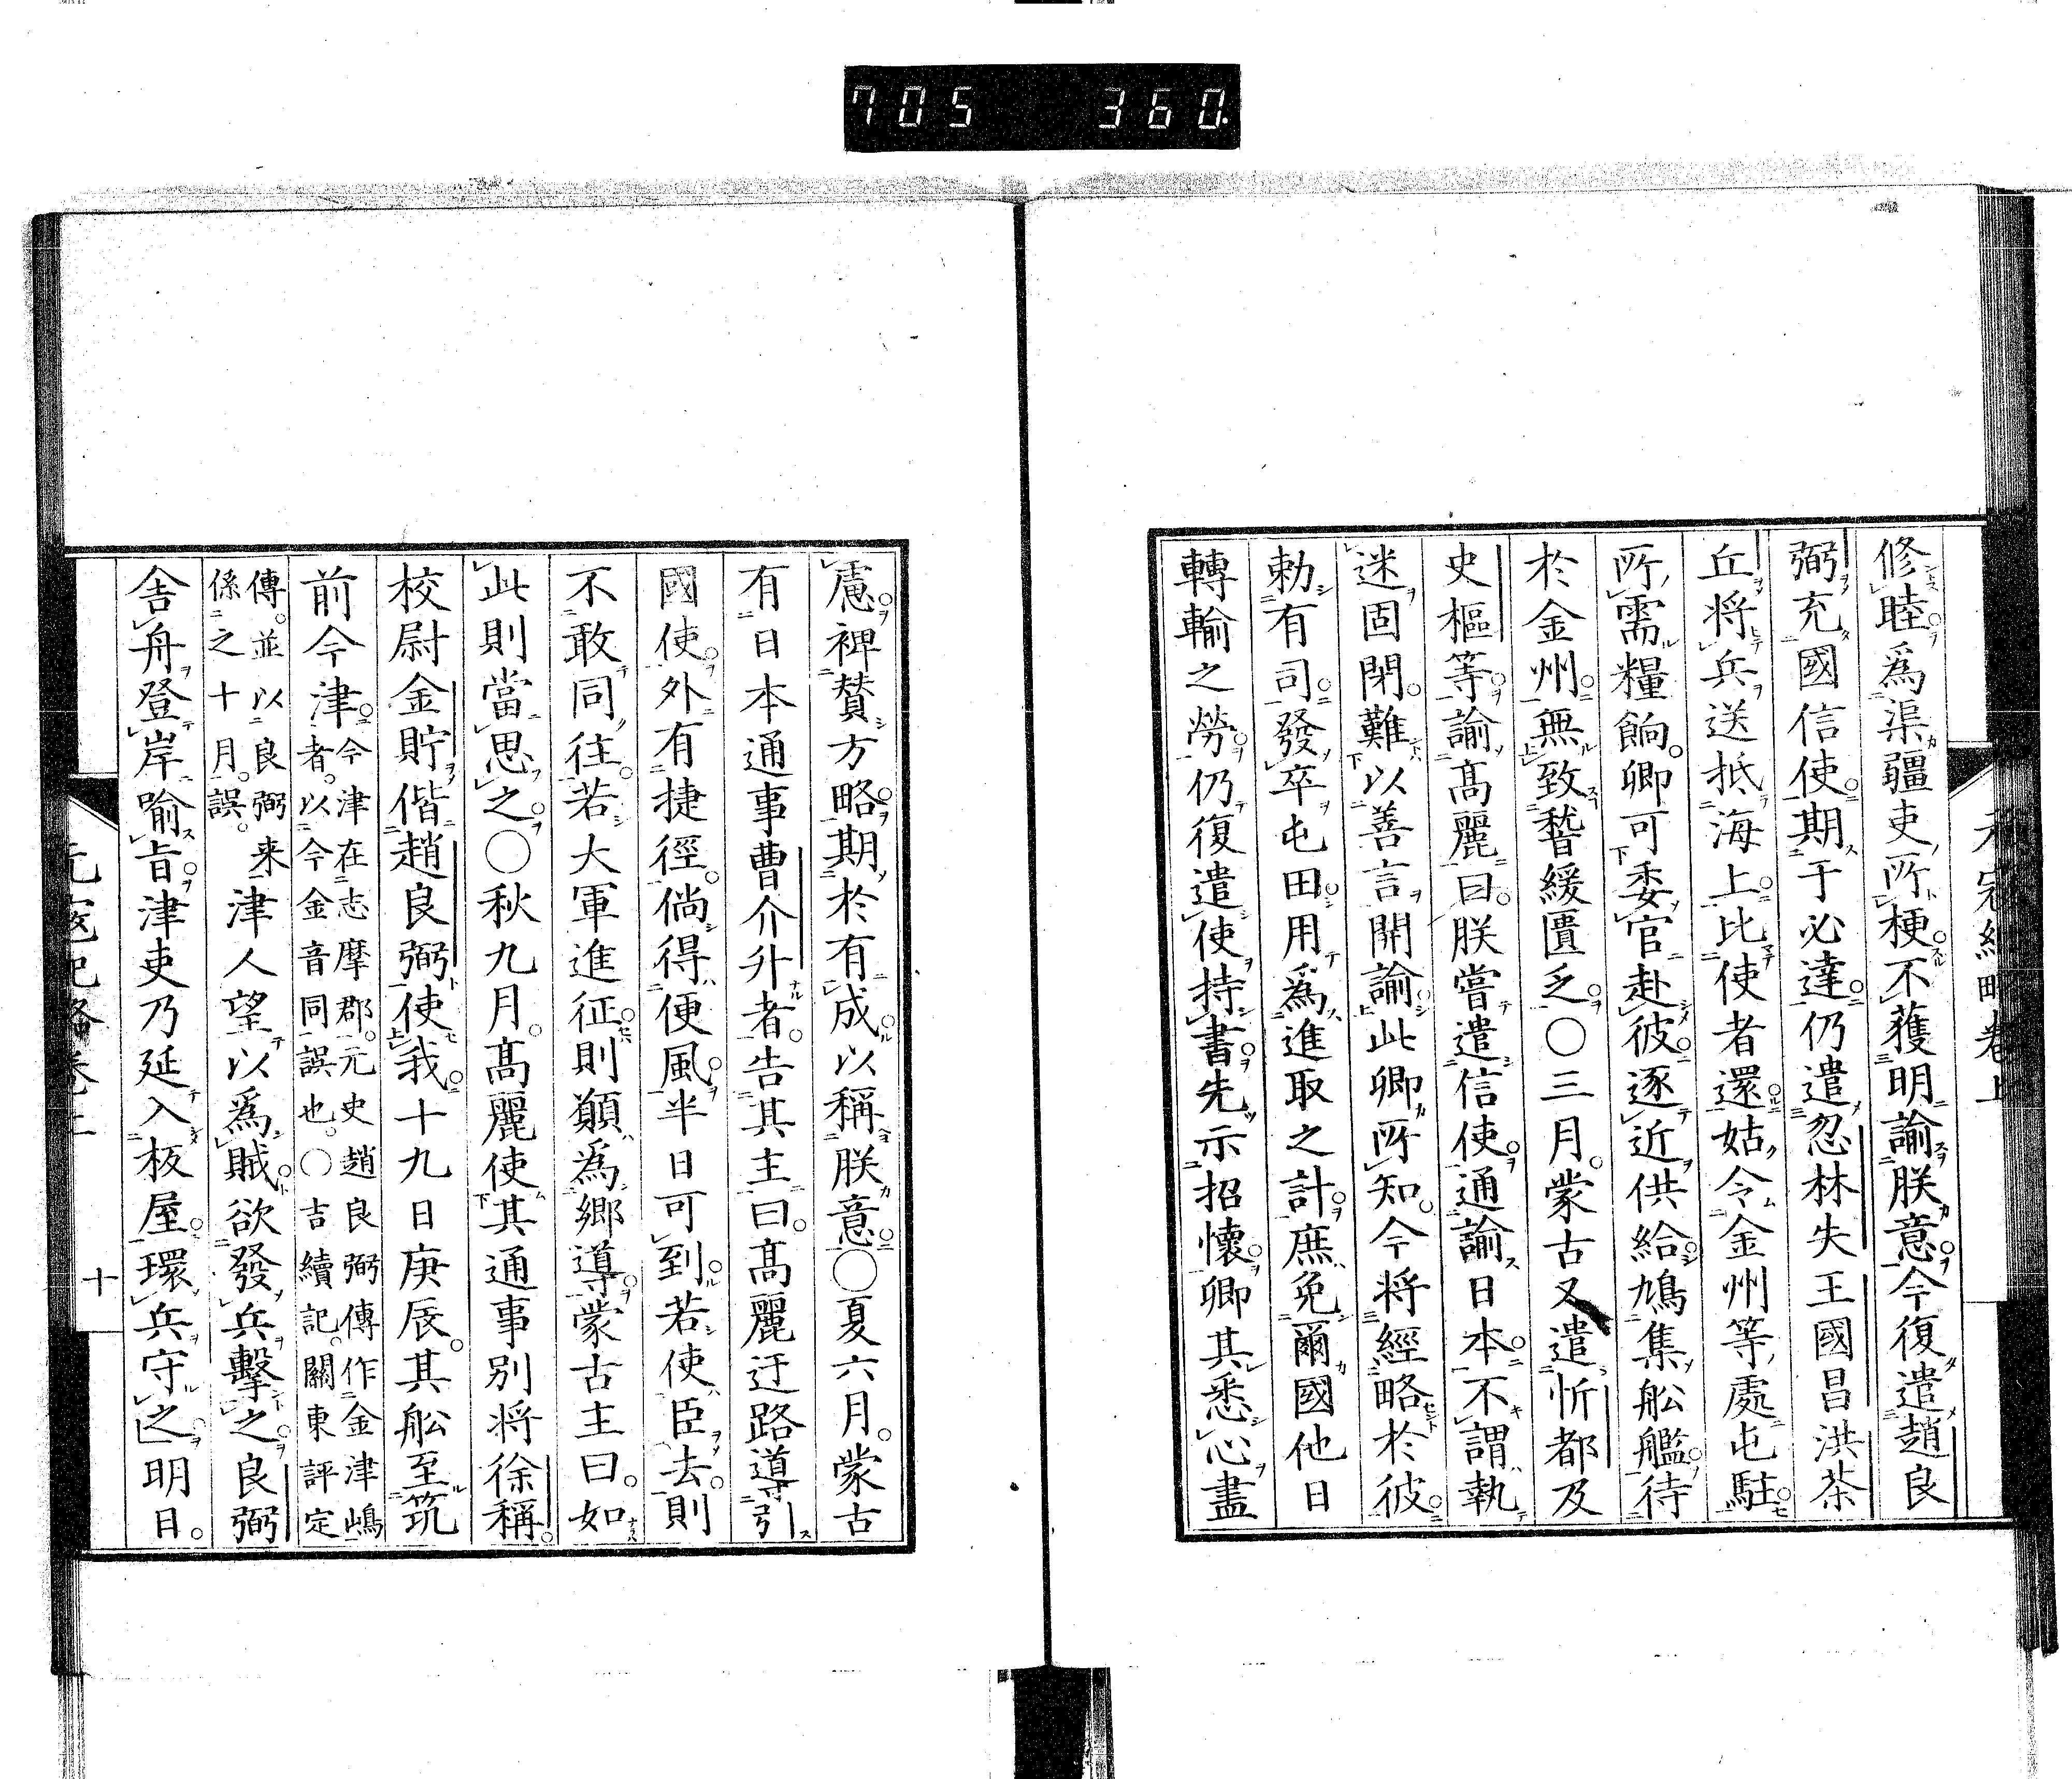 705 360
元寇紀略卷上
修睦爲渠疆吏所梗不獲明諭朕意今復遣趙良
弼充國信使期于必達仍遣忽林失王國昌洪茶
丘將兵送抵海上比使者還姑令金州等處屯駐
所需糧餉卿可委官赴彼逐近供給鳩集舩艦待
於金州無致稽緩匱乏〇三月蒙古又遣忻都及
史樞等諭髙麗曰朕嘗遣信使通諭日本不謂執
迷固閉難以善言開諭此卿所知今將經略於彼
勑有司發卒屯田用爲進取之計庶免爾國他日
轉輸之勞仍復遣使持書先示招懷卿其悉心盡
慮裨贊方略期於有成以稱朕意〇夏六月蒙古
有日本通事曹介升者告其主曰髙麗迂路導引
國使外有捷徑倘得便風半日可到若使臣去則
不敢同往若大軍進征則願爲鄉導蒙古主曰如
此則當思之〇秋九月髙麗使其通事別将徐稱
校尉金貯偕趙良弼使我十九日庚辰其舩至筑
前今津今津在志摩郡元史趙良弼傳作金津嶋
者以今金音同誤也〇吉續記關東評定
傳並以良弼来
係之十月誤津人望以爲賊欲發兵擊之良弼
舎舟登岸喻旨津吏乃延入板屋環兵守之明日
元寇紀略卷上
十